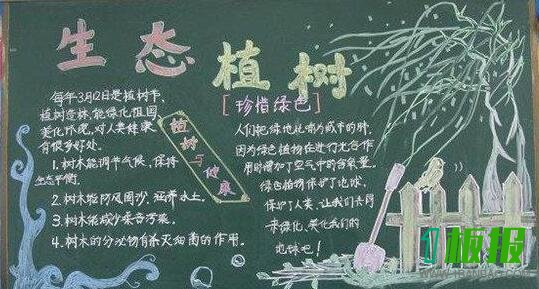 生态植树
[珍惜绿色]
每年3月12日是植树节,
植树造林,能绿化祖国
美化环观,对人类健康
有很多好处。
1.树木能调节气候,保持
生态平衡。
2.树木能防风固沙,涵养水土。
3.树木能减少噪音污染。
4.树木的分泌物有杀灭细菌的作用。
植树与健康
人们把绿地比喻为城市的肺,
因为绿色植物在进行光合作
用时增加了空气中的含氧量。
绿色植物保护了地球,
保护了人类,让我们共同
来绿化、美化我们的
地球吧!
板报